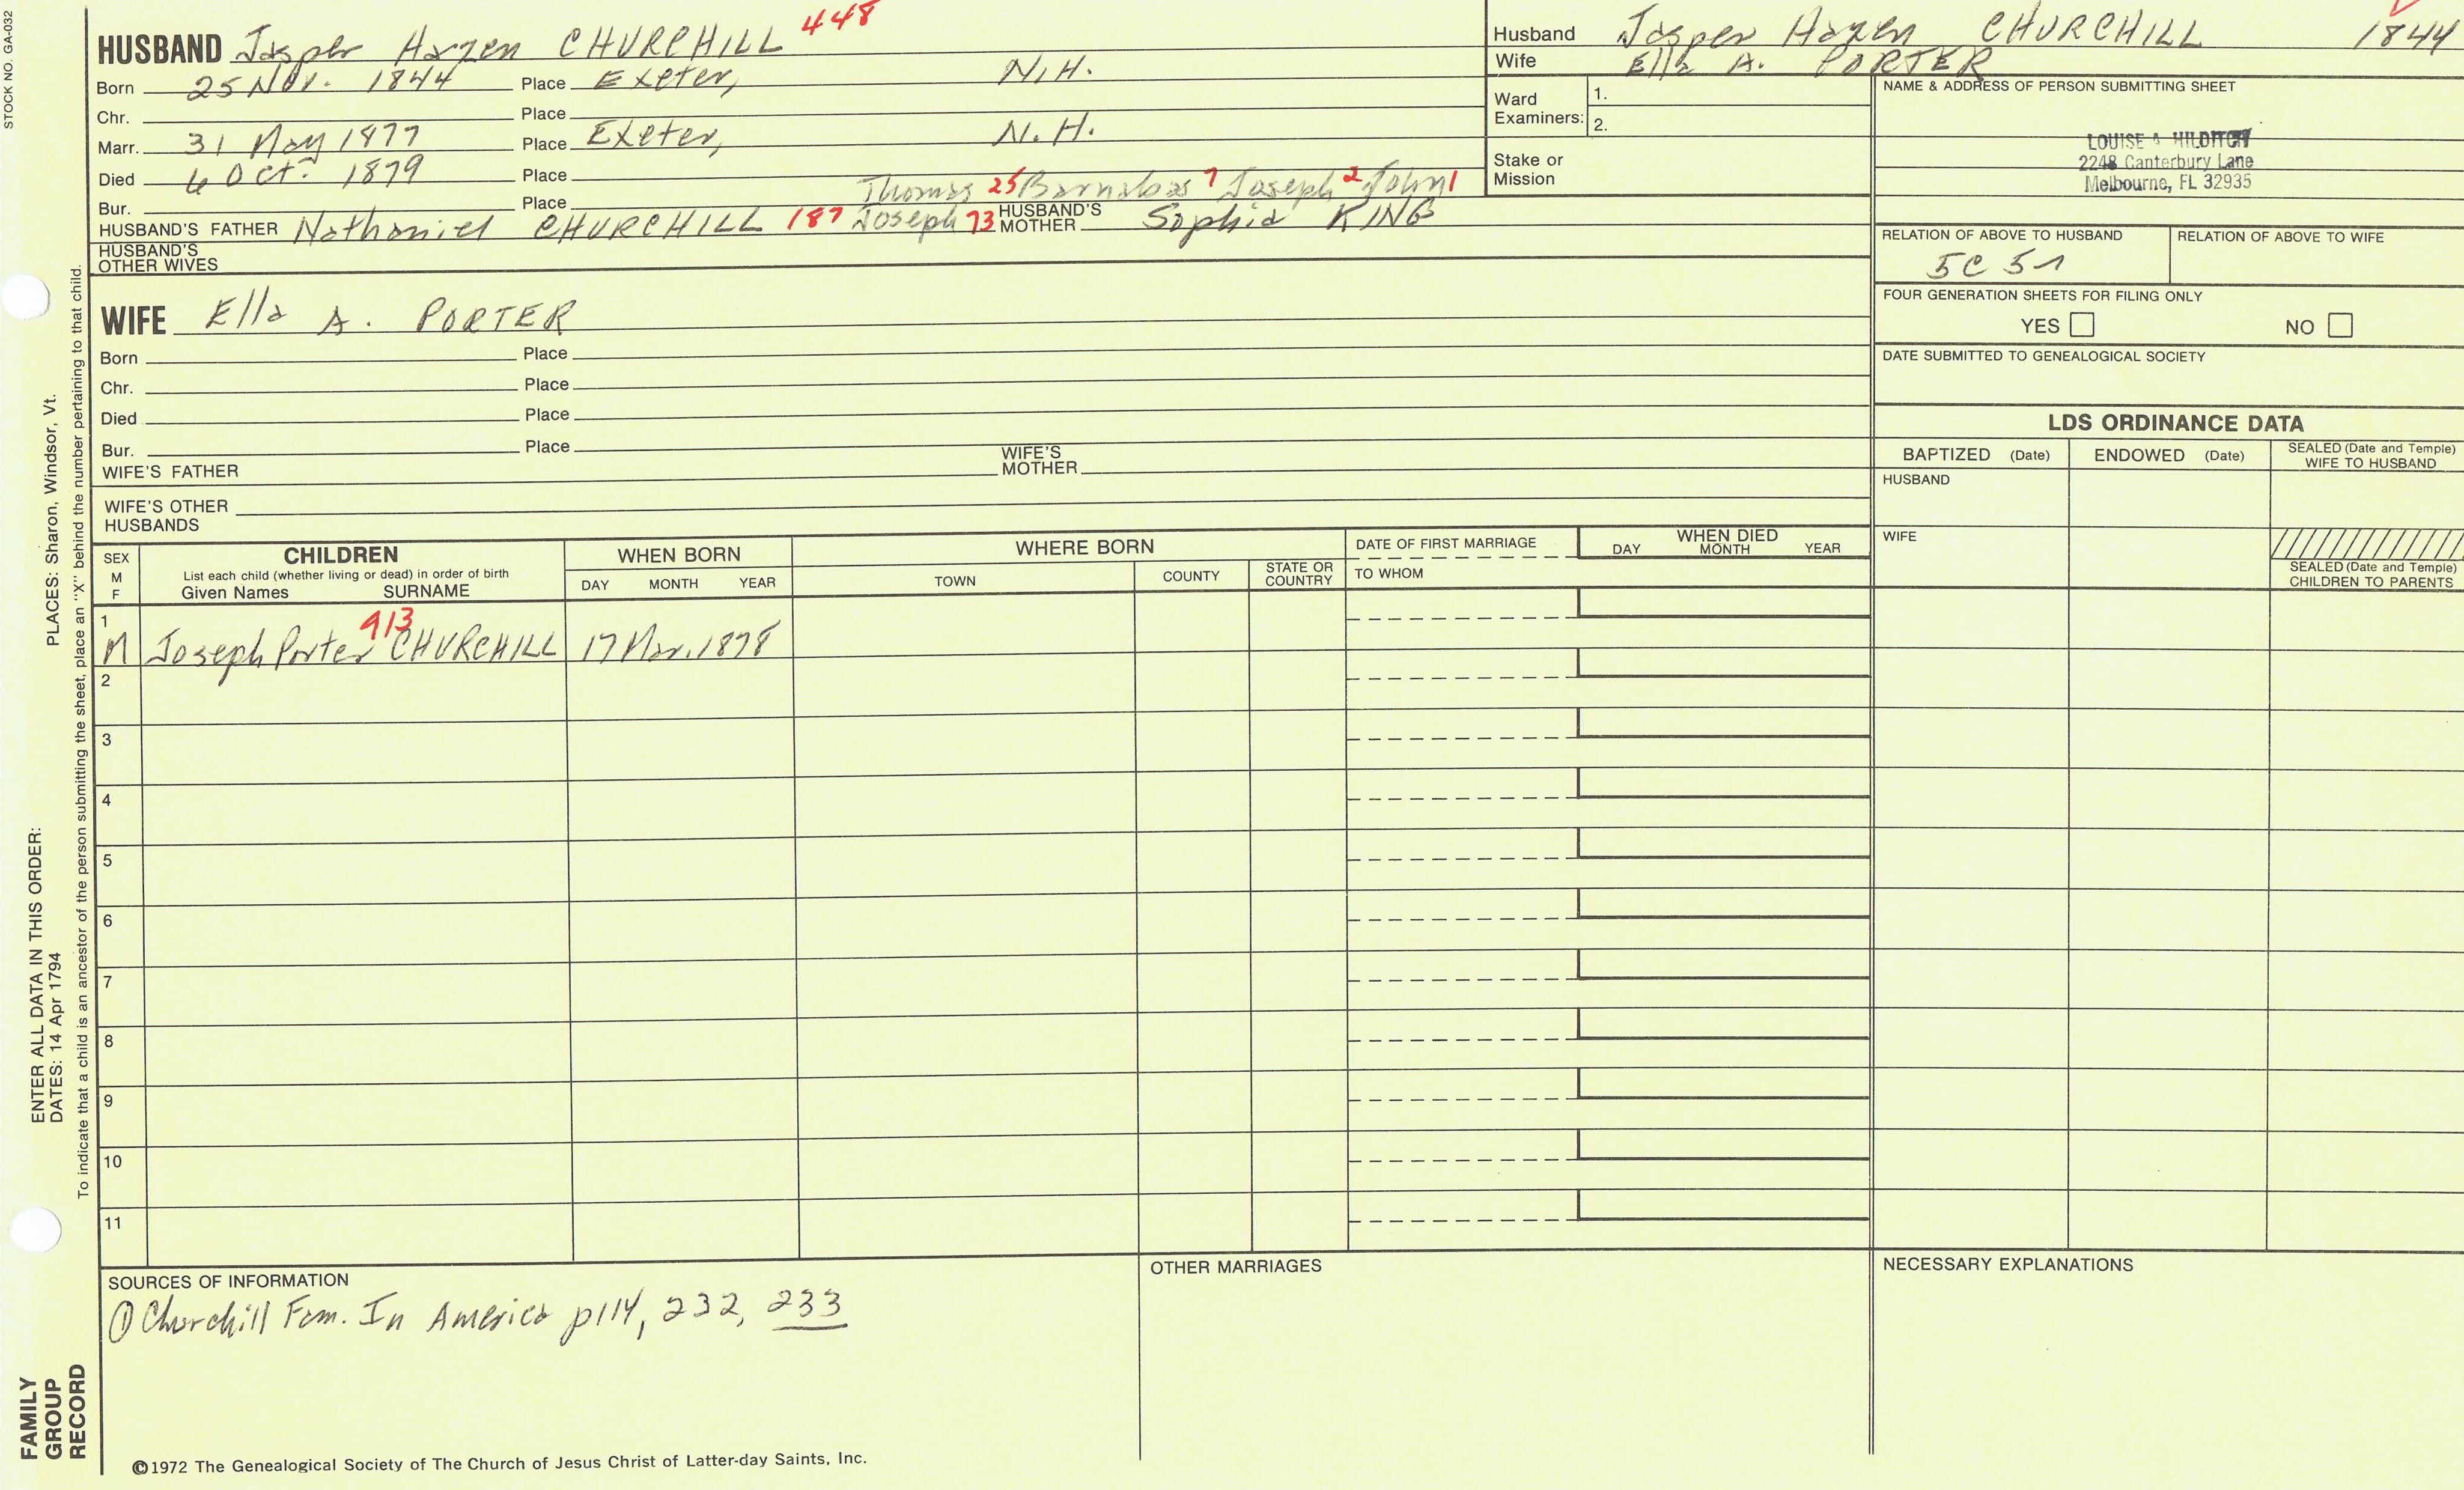 STOCK NO. GA-032
HUSBAND Jasper Hazen CHURCHILL 448
Born 25 Nov. 1844 Place Exeter, N.H.
Chr. Place
Marr. 31 May 1877 Place Exeter, N.H.
Died 6 Oct. 1879 Place
Thomas 25 Barnabas 7 Joseph 2 John 1
Bur. Place
HUSBAND'S FATHER Nathaniel CHURCHILL 187 Joseph 73 HUSBAND'S MOTHER Sophia KING
HUSBAND'S OTHER WIVES
Husband Jasper Hazen CHURCHILL 1844
Wife Ella A. PORTER
Ward Examiners: 1.
2.
Stake or Mission
NAME & ADDRESS OF PERSON SUBMITTING SHEET
LOUISE A HILDITCH
2248 Canterbury Lane
Melbourne, FL 32935
RELATION OF ABOVE TO HUSBAND RELATION OF ABOVE TO WIFE
5C 5
FOUR GENERATION SHEETS FOR FILING ONLY
YES NO
DATE SUBMITTED TO GENEALOGICAL SOCIETY
WIFE Ella A. PORTER
Born Place
Chr. Place
Died Place
Bur. Place
WIFE'S FATHER WIFE'S MOTHER
WIFE'S OTHER HUSBANDS
LDS ORDINANCE DATA
BAPTIZED (Date) ENDOWED (Date) SEALED (Date and Temple) WIFE TO HUSBAND
HUSBAND
WIFE
SEALED (Date and Temple) CHILDREN TO PARENTS
SEX M F CHILDREN WHEN BORN WHERE BORN DATE OF FIRST MARRIAGE WHEN DIED
List each child (whether living or dead) in order of birth
Given Names SURNAME DAY MONTH YEAR TOWN COUNTY STATE OR COUNTRY TO WHOM DAY MONTH YEAR
1 M Joseph Porter 913 CHURCHILL 17 Mar. 1878
2
3
4
5
6
7
8
9
10
11
SOURCES OF INFORMATION
① Churchill Fam. In America p114, 232, 233
OTHER MARRIAGES
NECESSARY EXPLANATIONS
©1972 The Genealogical Society of The Church of Jesus Christ of Latter-day Saints, Inc.
FAMILY GROUP RECORD
ENTER ALL DATA IN THIS ORDER:
DATES: 14 Apr 1794 PLACES: Sharon, Windsor, Vt.
To indicate that a child is an ancestor of the person submitting the sheet, place an "X" behind the number pertaining to that child.